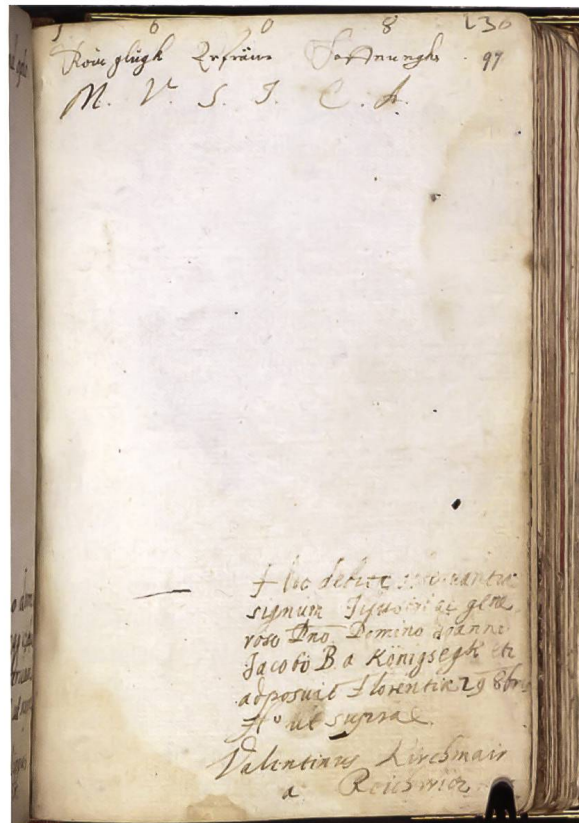 1 6 0 8 136
Kein glügk Erfräün Hoffnungh 97
M. V. S. I. C. A.
Hoc debitæ
signum Illustri ac gene
roso Dno Domino Joanni
Jacobo B a Königsegk etc
adposuit Florentiæ 29 8bris
Ao ut supra
Valentinus Kirchmair
a Reichwicz